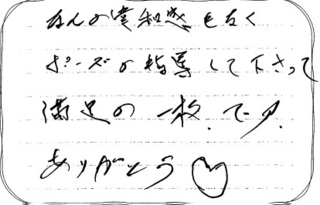 なんの違和感もなく
ポーズの指導して下さって
満足の一枚.です.
ありがとう